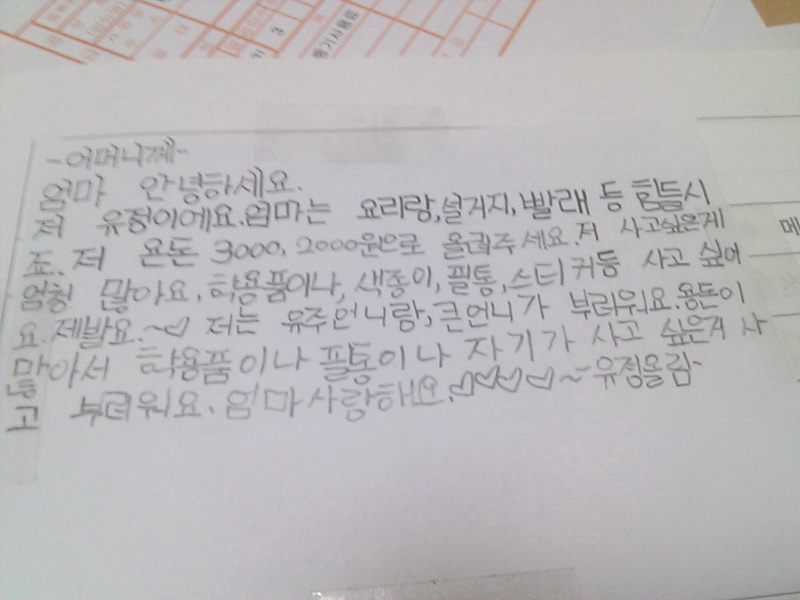 -어머니께-
엄마 안녕하세요.
저 유정이에요.엄마는 요리랑,설거지,빨래 등 힘들시
죠.저 욘돈 3000, 2000원으로 올려주세요.저 사고싶은게
엄청 많아요, 학용품이나, 색종이,필통,스티커등 사고 싶어
요.제발요.~♡ 저는 유주언니랑,큰언니가 부러워요.용돈이
많아서 학용품이나 필통이나 자기가 사고 싶은거 사
고 부러워요. 엄마사랑해요.♡♡♡♡~-유정올림-
메